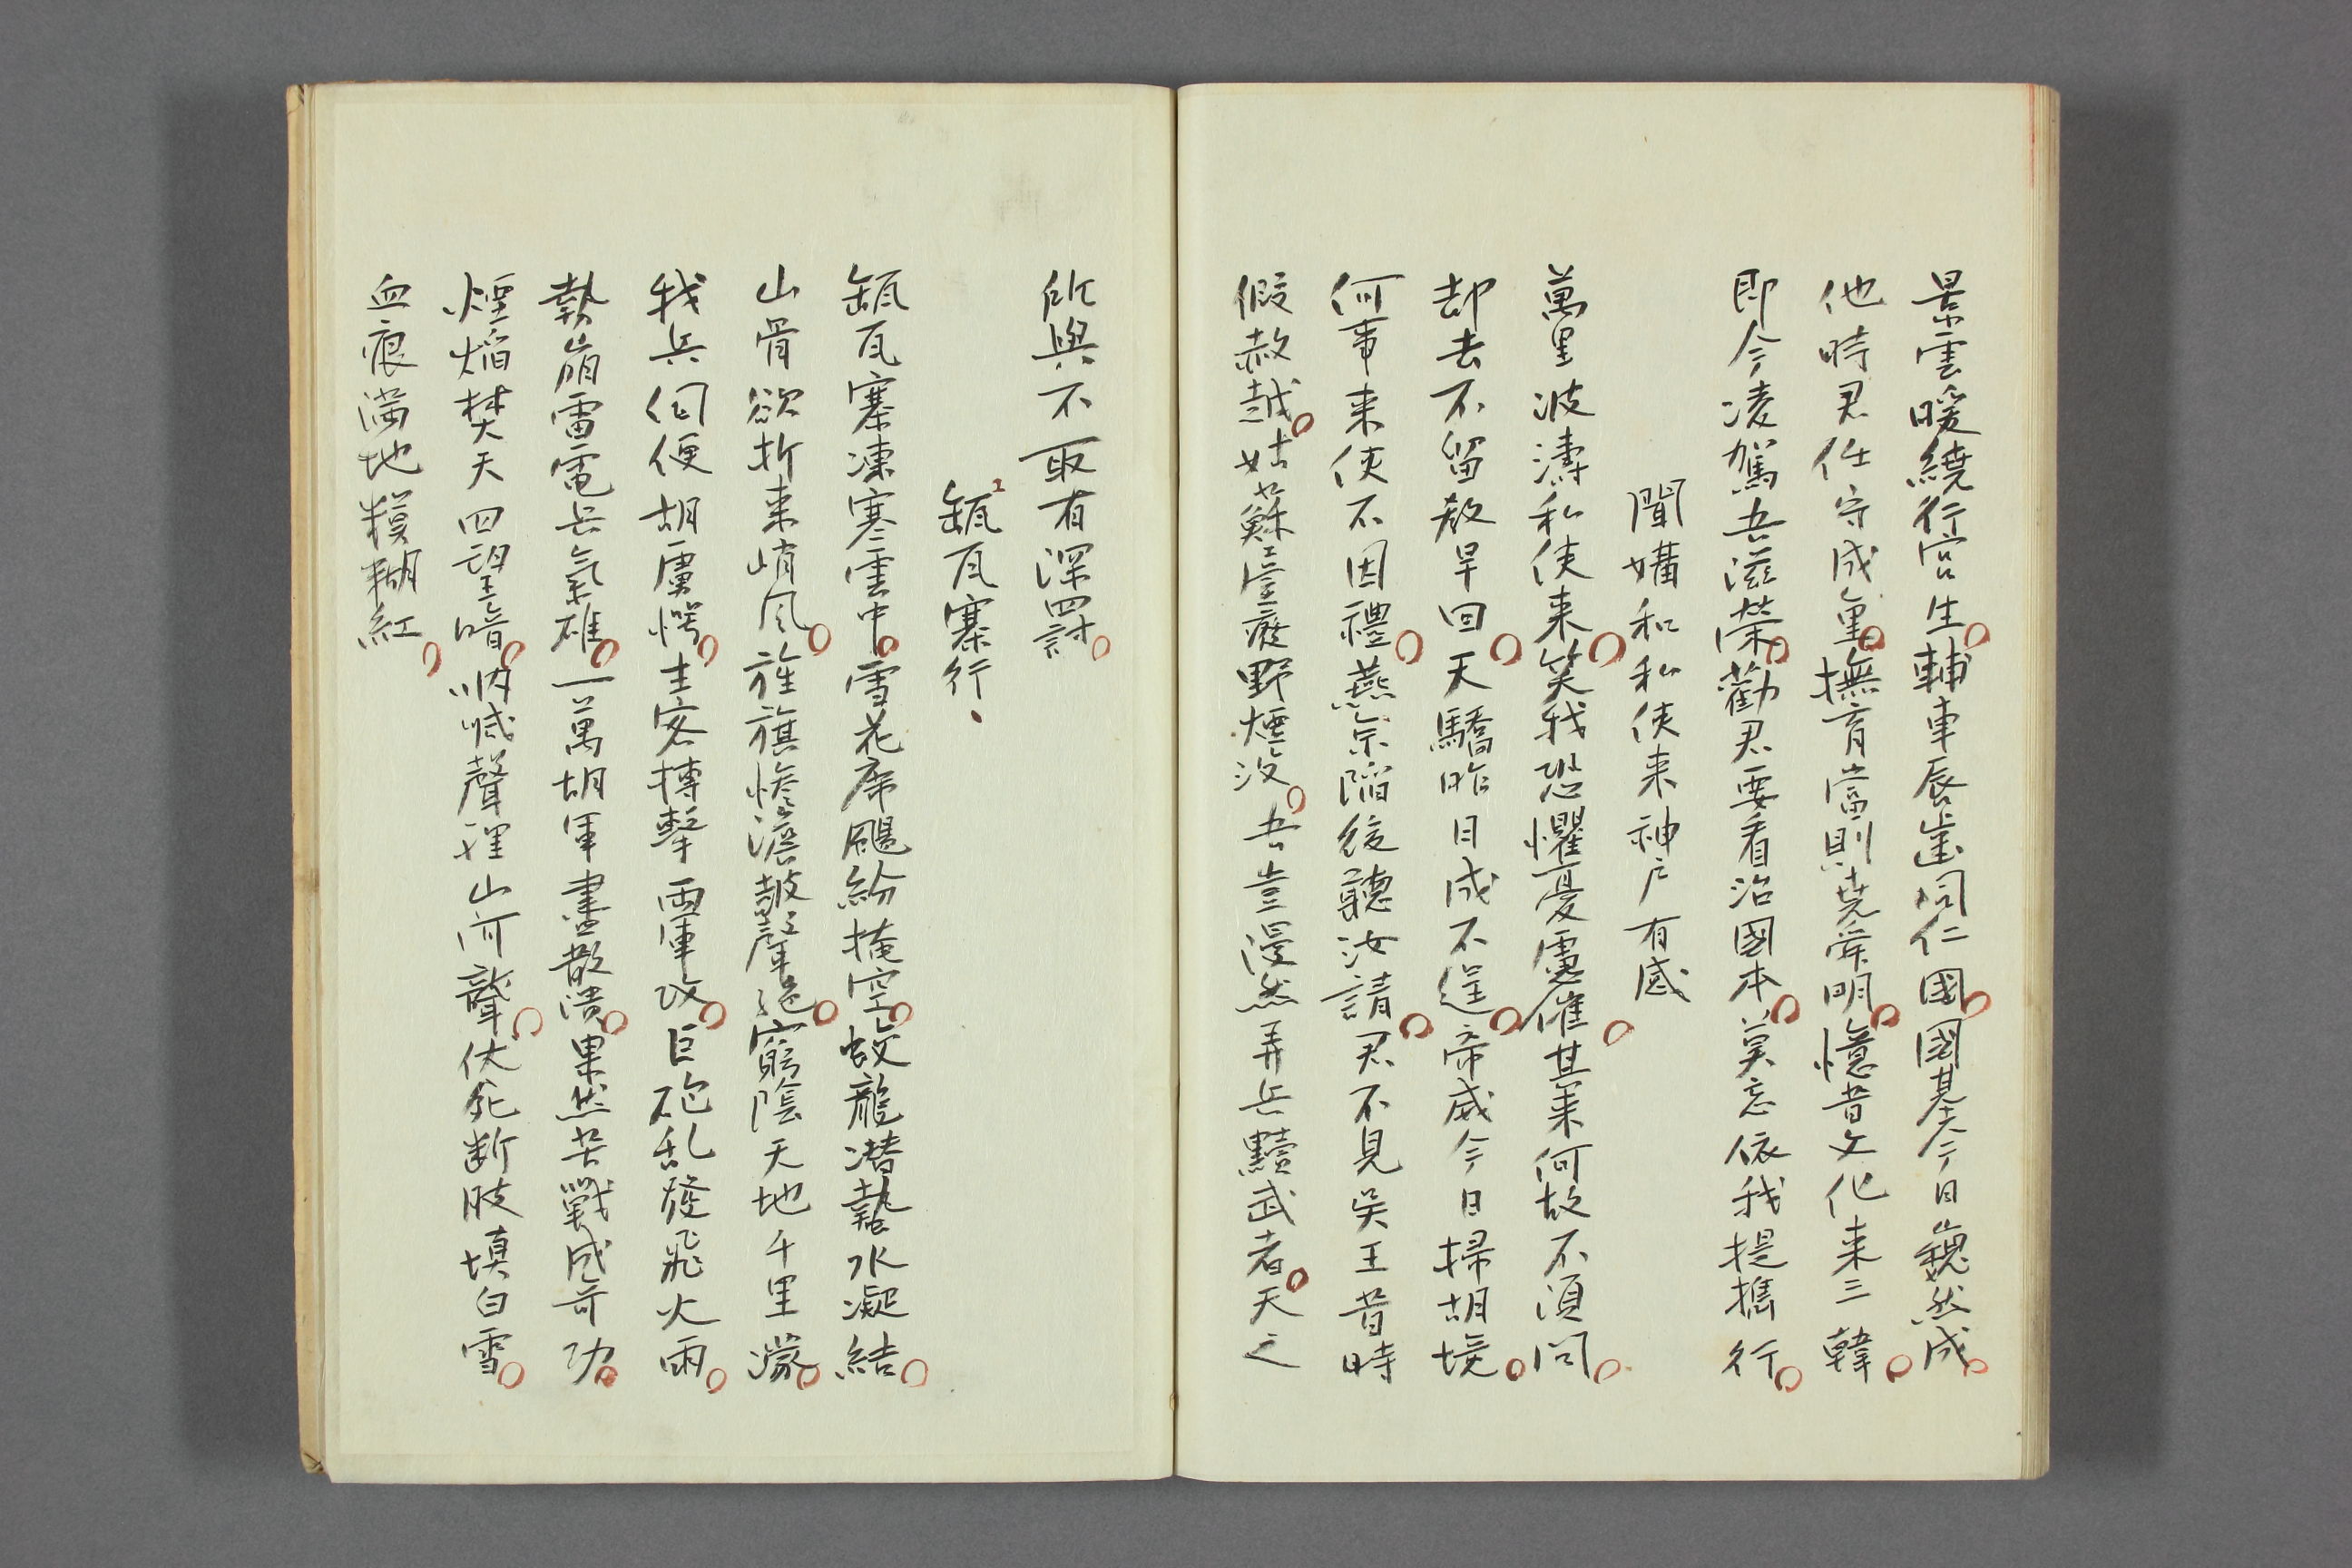 景雲暖繞行宮生輔車唇歯同仁國國基今日巍然成
他時君任守成重撫育當則堯舜明憶昔文化来三韓
即今凌駕吾滋榮勸君要看治國本莫忘依我提携行
聞媾和私使来神戸有感
萬里波濤私使来笑我恐懼憂慮催其来何故不須問
却去不留敖早回天驕昨日成不逞帝威今日掃胡境
何事来使不因禮燕京陥後聽汝請君不見吴王昔時
假赦越姑蘇臺廢野煙没吾豈漫然弄兵黷武者天之
所與不取有深罸
缸瓦寨行
缸瓦寨凍寒雲中雪花席颺紛掩空蛟龍潜蟄水凝結
山骨欲折来峭風旌旗惨澹鼓聲絶窮陰天地千里濛
我兵伺便胡虜愕主客搏撃両軍攻巨砲乱發飛火雨
勢崩雷電兵氣雄一萬胡軍盡散潰果然苦戰成奇功
煙焔焚天四望暗吶喊聲裡山河聾伏死断肢填白雪
血痕満地糢糊紅